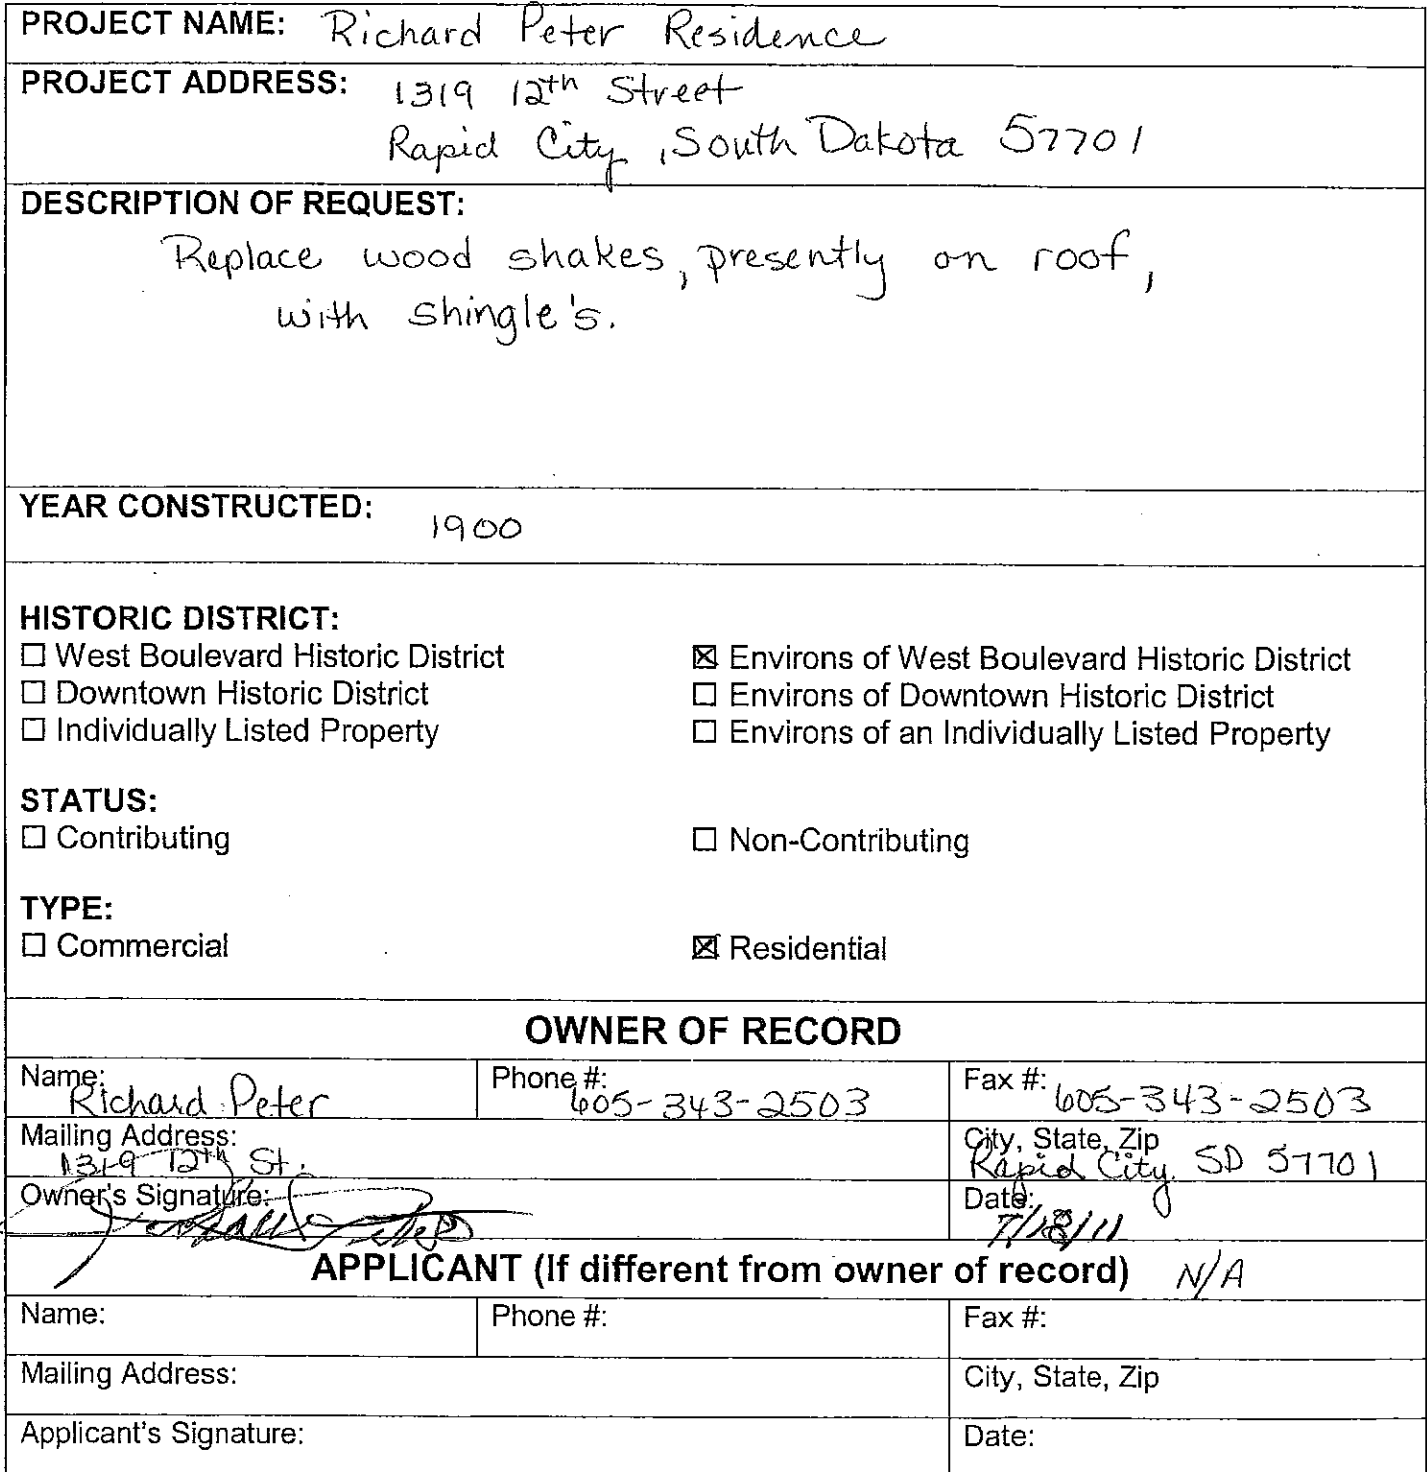 PROJECT NAME: Richard Peter Residence
PROJECT ADDRESS: 1319 12th Street
Rapid City, South Dakota 57701
DESCRIPTION OF REQUEST:
Replace wood shakes, presently on roof,
with shingle's.
YEAR CONSTRUCTED: 1900
HISTORIC DISTRICT:
☐ West Boulevard Historic District ☒ Environs of West Boulevard Historic District
☐ Downtown Historic District ☐ Environs of Downtown Historic District
☐ Individually Listed Property ☐ Environs of an Individually Listed Property
STATUS:
☐ Contributing ☐ Non-Contributing
TYPE:
☐ Commercial ☒ Residential
OWNER OF RECORD
Name: Richard Peter Phone #: 605-343-2503 Fax #: 605-343-2503
Mailing Address: 1319 12th St. City, State, Zip Rapid City, SD 57701
Owner's Signature: Date: 7/18/11
APPLICANT (If different from owner of record) N/A
Name: Phone #: Fax #:
Mailing Address: City, State, Zip
Applicant's Signature: Date: